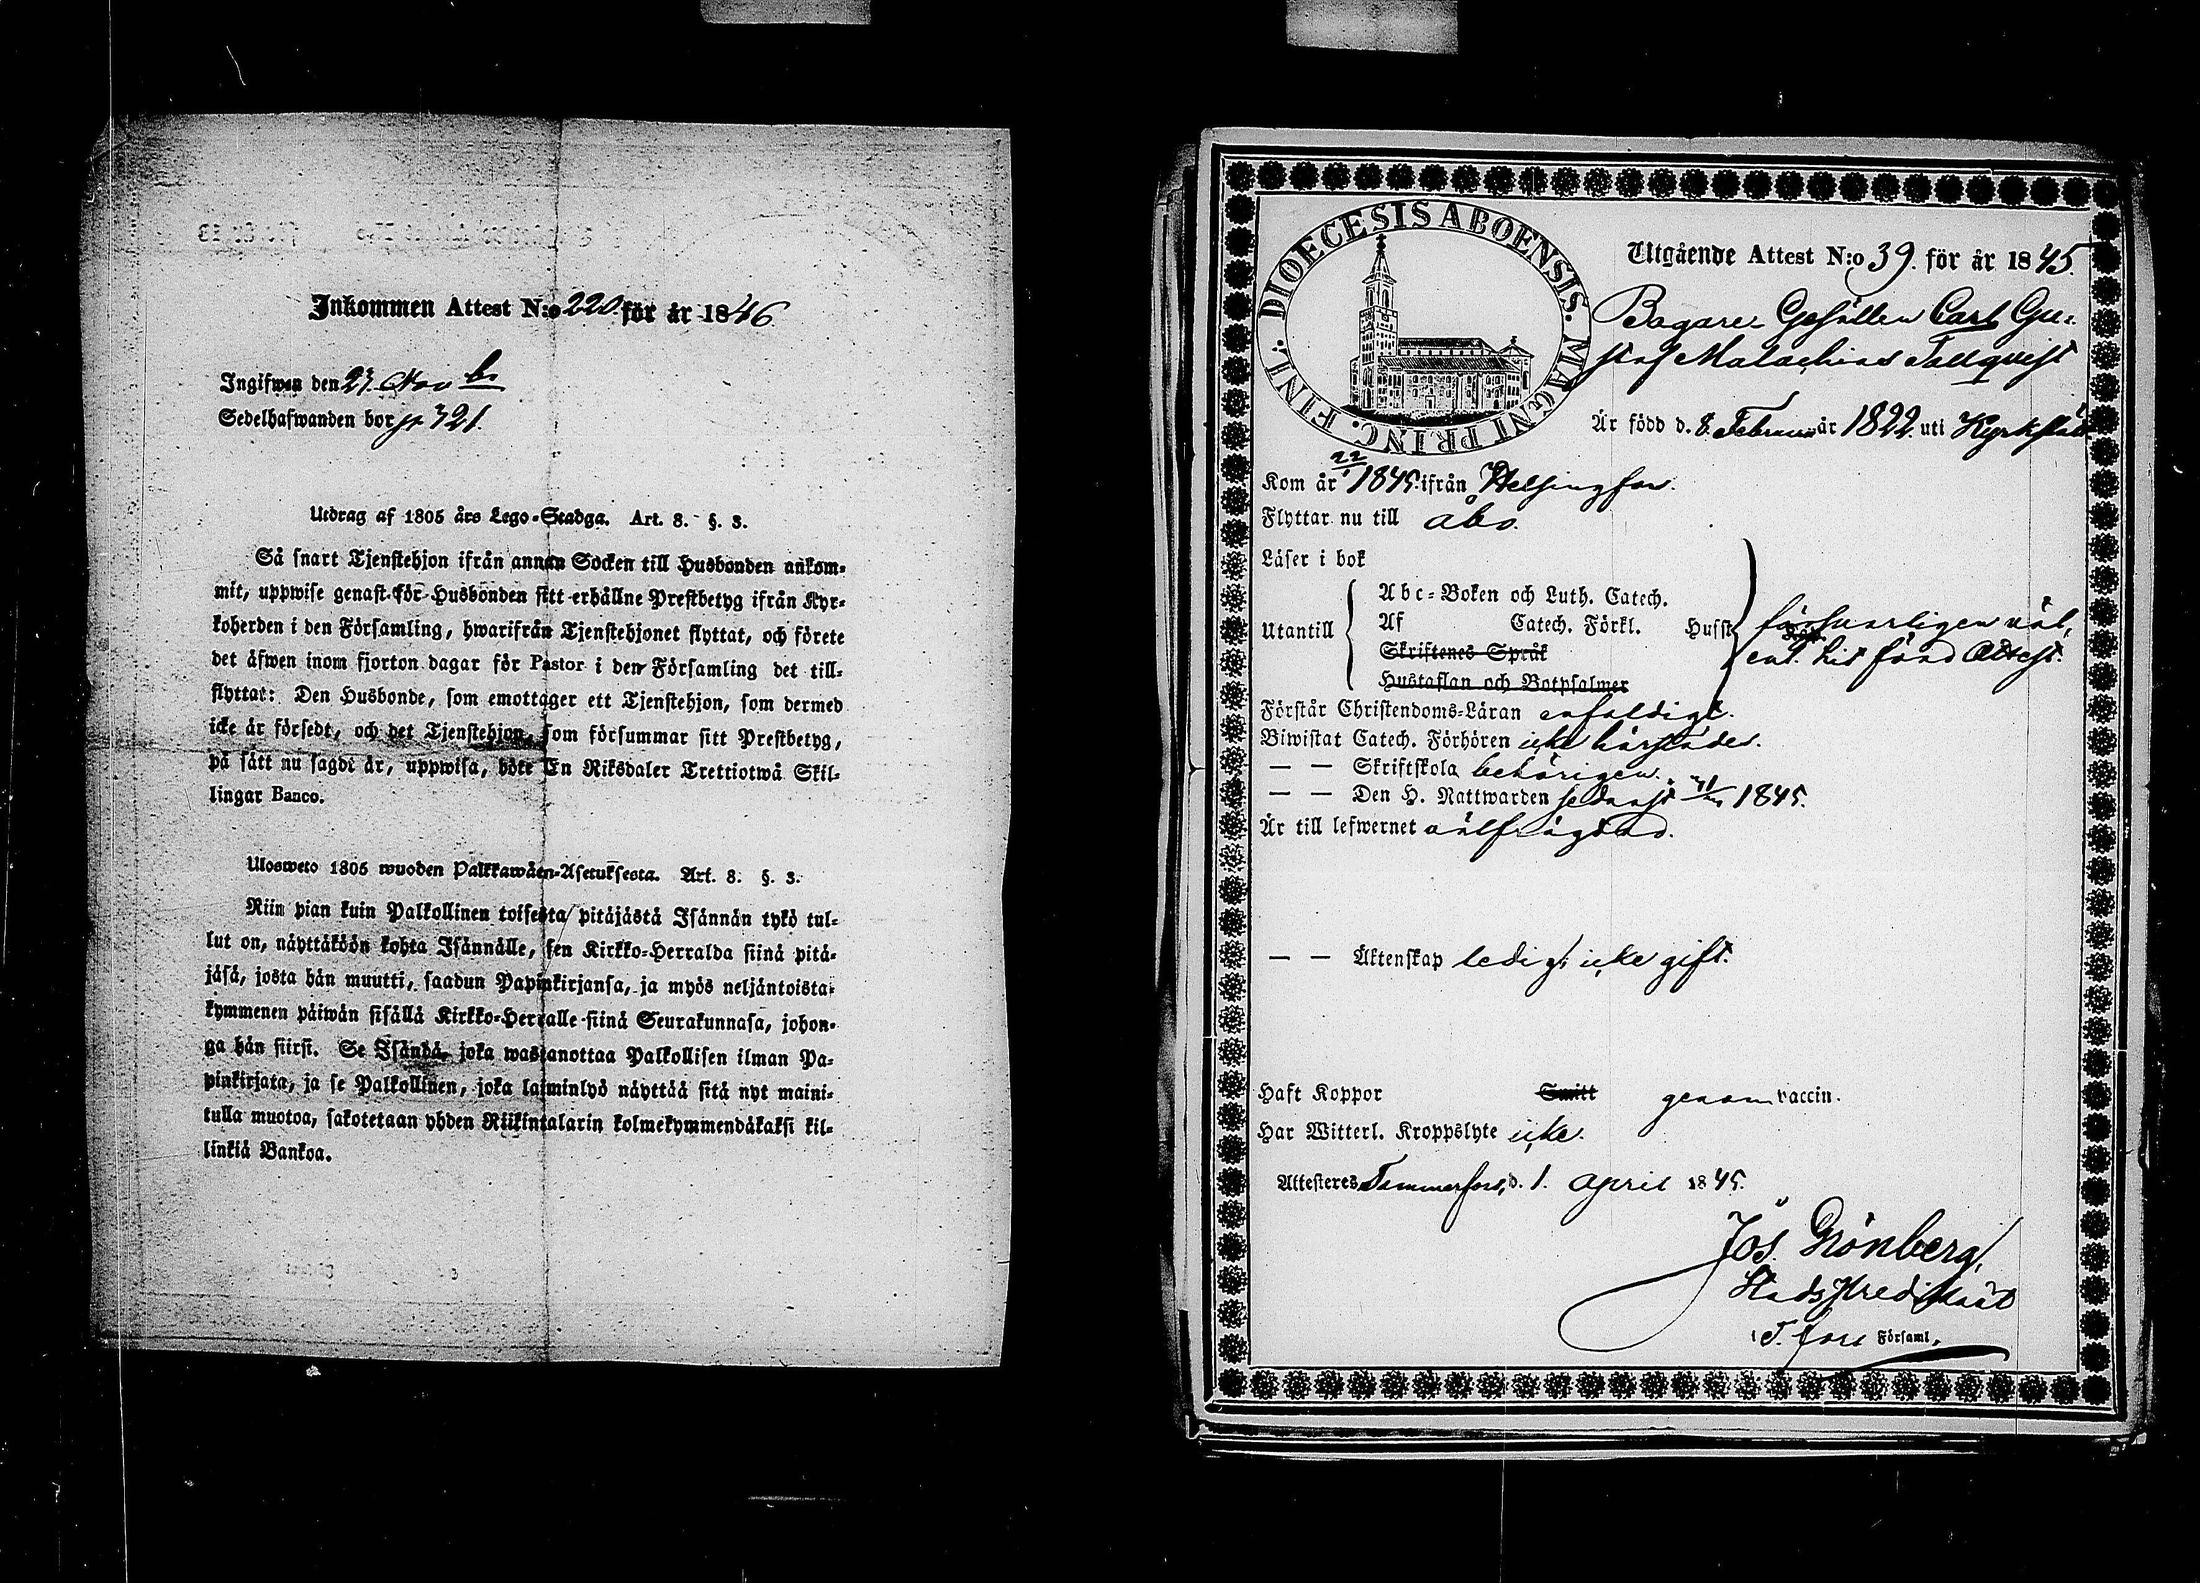 Inkommen Attest N:o 220. för år 1846.
Ingifwen den 27. Novbr
Sedelhafwanden bor p 321.
Utdrag af 1805 års Lego-Stadga. Art. 8. §. 3.
Så snart Tjenstehjon ifrån annan Socken till Husbonden ankom-
mit, uppwise genast för Husbonden sitt erhållne Prestbetyg ifrån Kyr-
koherden i den Församling, hwarifrån Tjenstehjonet flyttat, och förete
det äfwen inom fjorton dagar för Pastor i den Församling det till-
flyttat: Den Husbonde, som emottager ett Tjenstehjon, som dermed
icke är försedt, och det Tjenstehjon, som försummar sitt Prestbetyg,
på sätt nu sagdt är, uppwisa, böte En Riksdaler Trettiotwå Skil-
lingar Banco.
Ulosweto 1805 wuoden Palkkawäen-Asetuksesta. Art. 8. §. 3.
Niin pian kuin Palkollinen toisesta pitäjästä Isännän tykö tul-
lut on, näyttäköön kohta Isännälle, sen Kirkko-Herralda siinä pitä-
jäsä, josta hän muutti, saadun Papinkirjansa, ja myös neljäntoista-
kymmenen päiwän sisällä Kirkko-Herralle siinä Seurakunnasa, johon-
ga hän siirsi. Se Isändä, joka wastanottaa Palkollisen ilman Pa-
pinkirjata, ja se Palkollinen, joka laiminlyö näyttää sitä nyt maini-
tulla muotoa, sakotetaan yhden Riikintalarin kolmekymmendäkaksi kil-
linkiä Bankoa.
DIOECESIS ABOENSIS. MAGNI PRINC. FINL.
Utgående Attest N:o 39. för år 1845.
Bagare Gesällen Carl Gu-
staf Malachias Tallqvist
Är född d. 8. Februari år 1822. uti Kyrkslätt
Kom år 22/1 1845. ifrån Helsingfors.
Flyttar nu till Åbo.
Läser i bok
Abc-Boken och Luth. Catech.
Utantill Af Catech. Förkl. Husst försvarligen väl,
Skriftenes Språk enl. hit förd Attest.
Hustaflan och Botpsalmer
Förstår Christendoms-Läran enfaldigt.
Biwistat Catech. Förhören icke härstädes.
— — Skriftskola behörigen.
— — Den H. Nattwarden sednast 1845.
Är till lefwernet välfrägdad.
— — Äktenskap ledig, icke gift.
Haft Koppor Smitt genom vaccin.
Har Witterl. Kroppslyte icke.
Attesteres Tammerfors, d. 1. April 1845.
Jos. Grönberg,
Stads Predikant
i T. fors Församl.